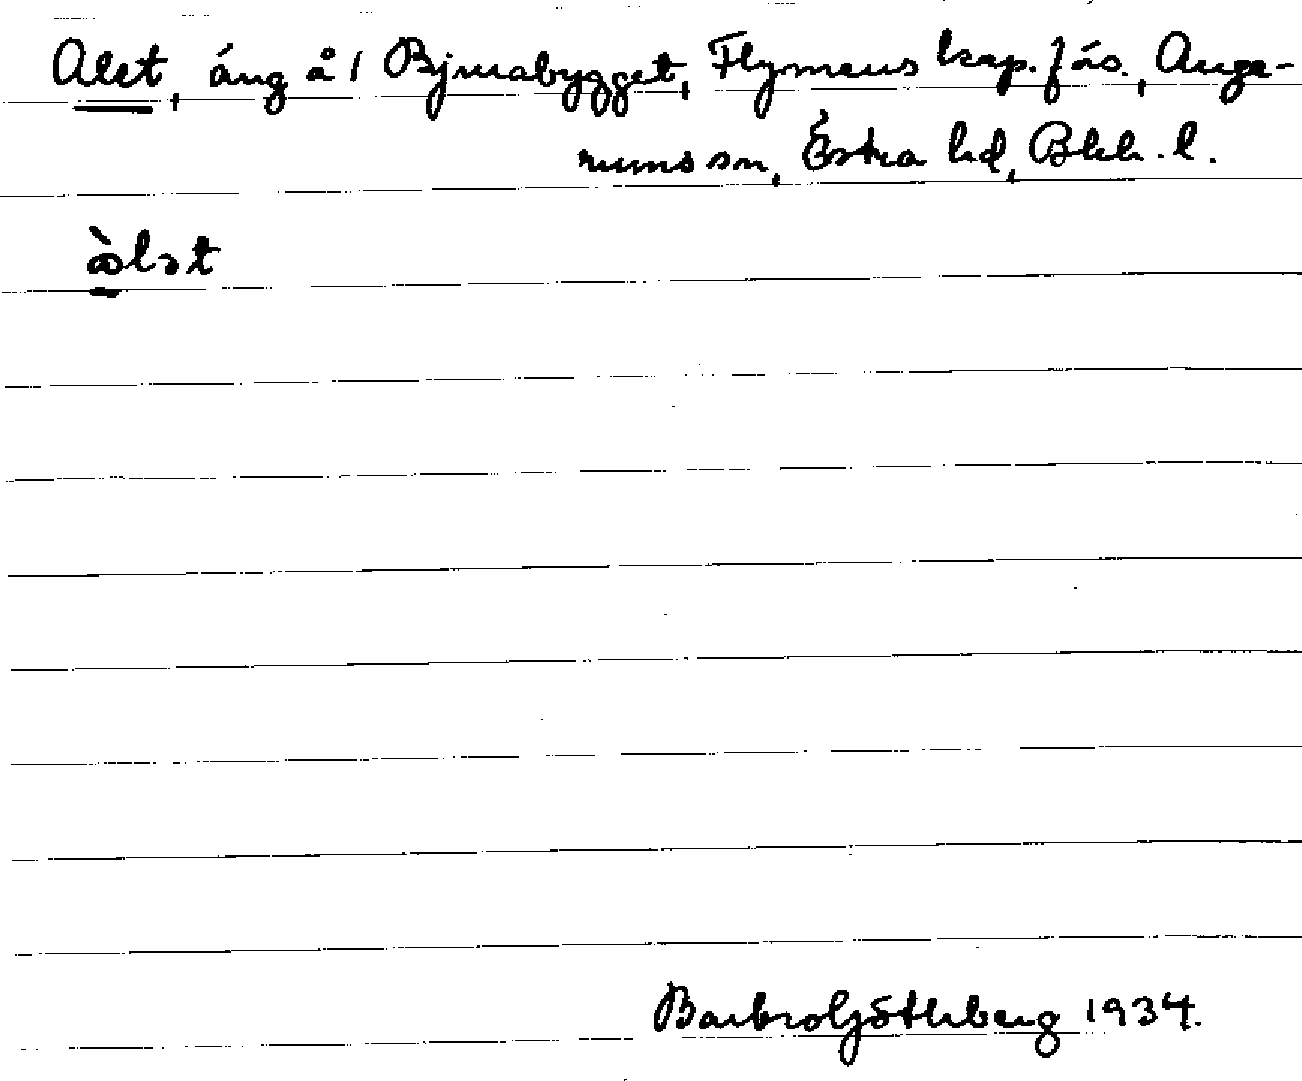 Alet, äng å 1 Björnabygget, Flymens kap.förs., Auge-
rums sn, Östra hd, Blek. l.
àlət
Barbro Göthberg 1934.